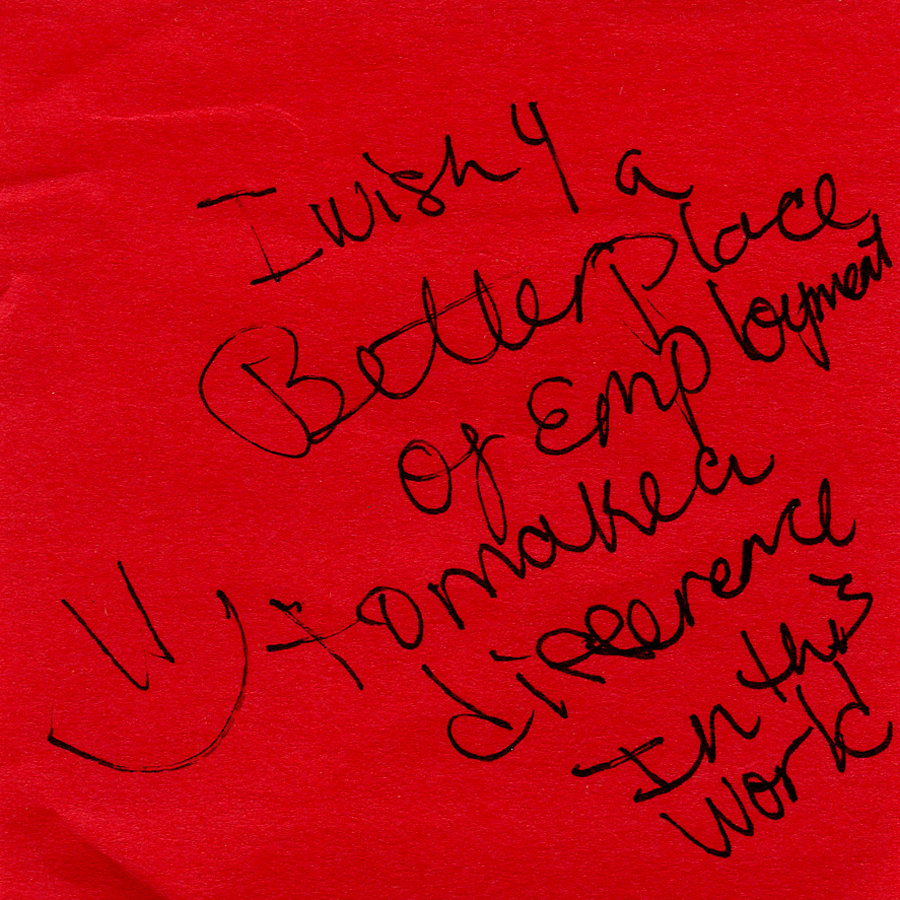 I wish 4 a
Better place
Of Employment
to make a
difference
In this
Work